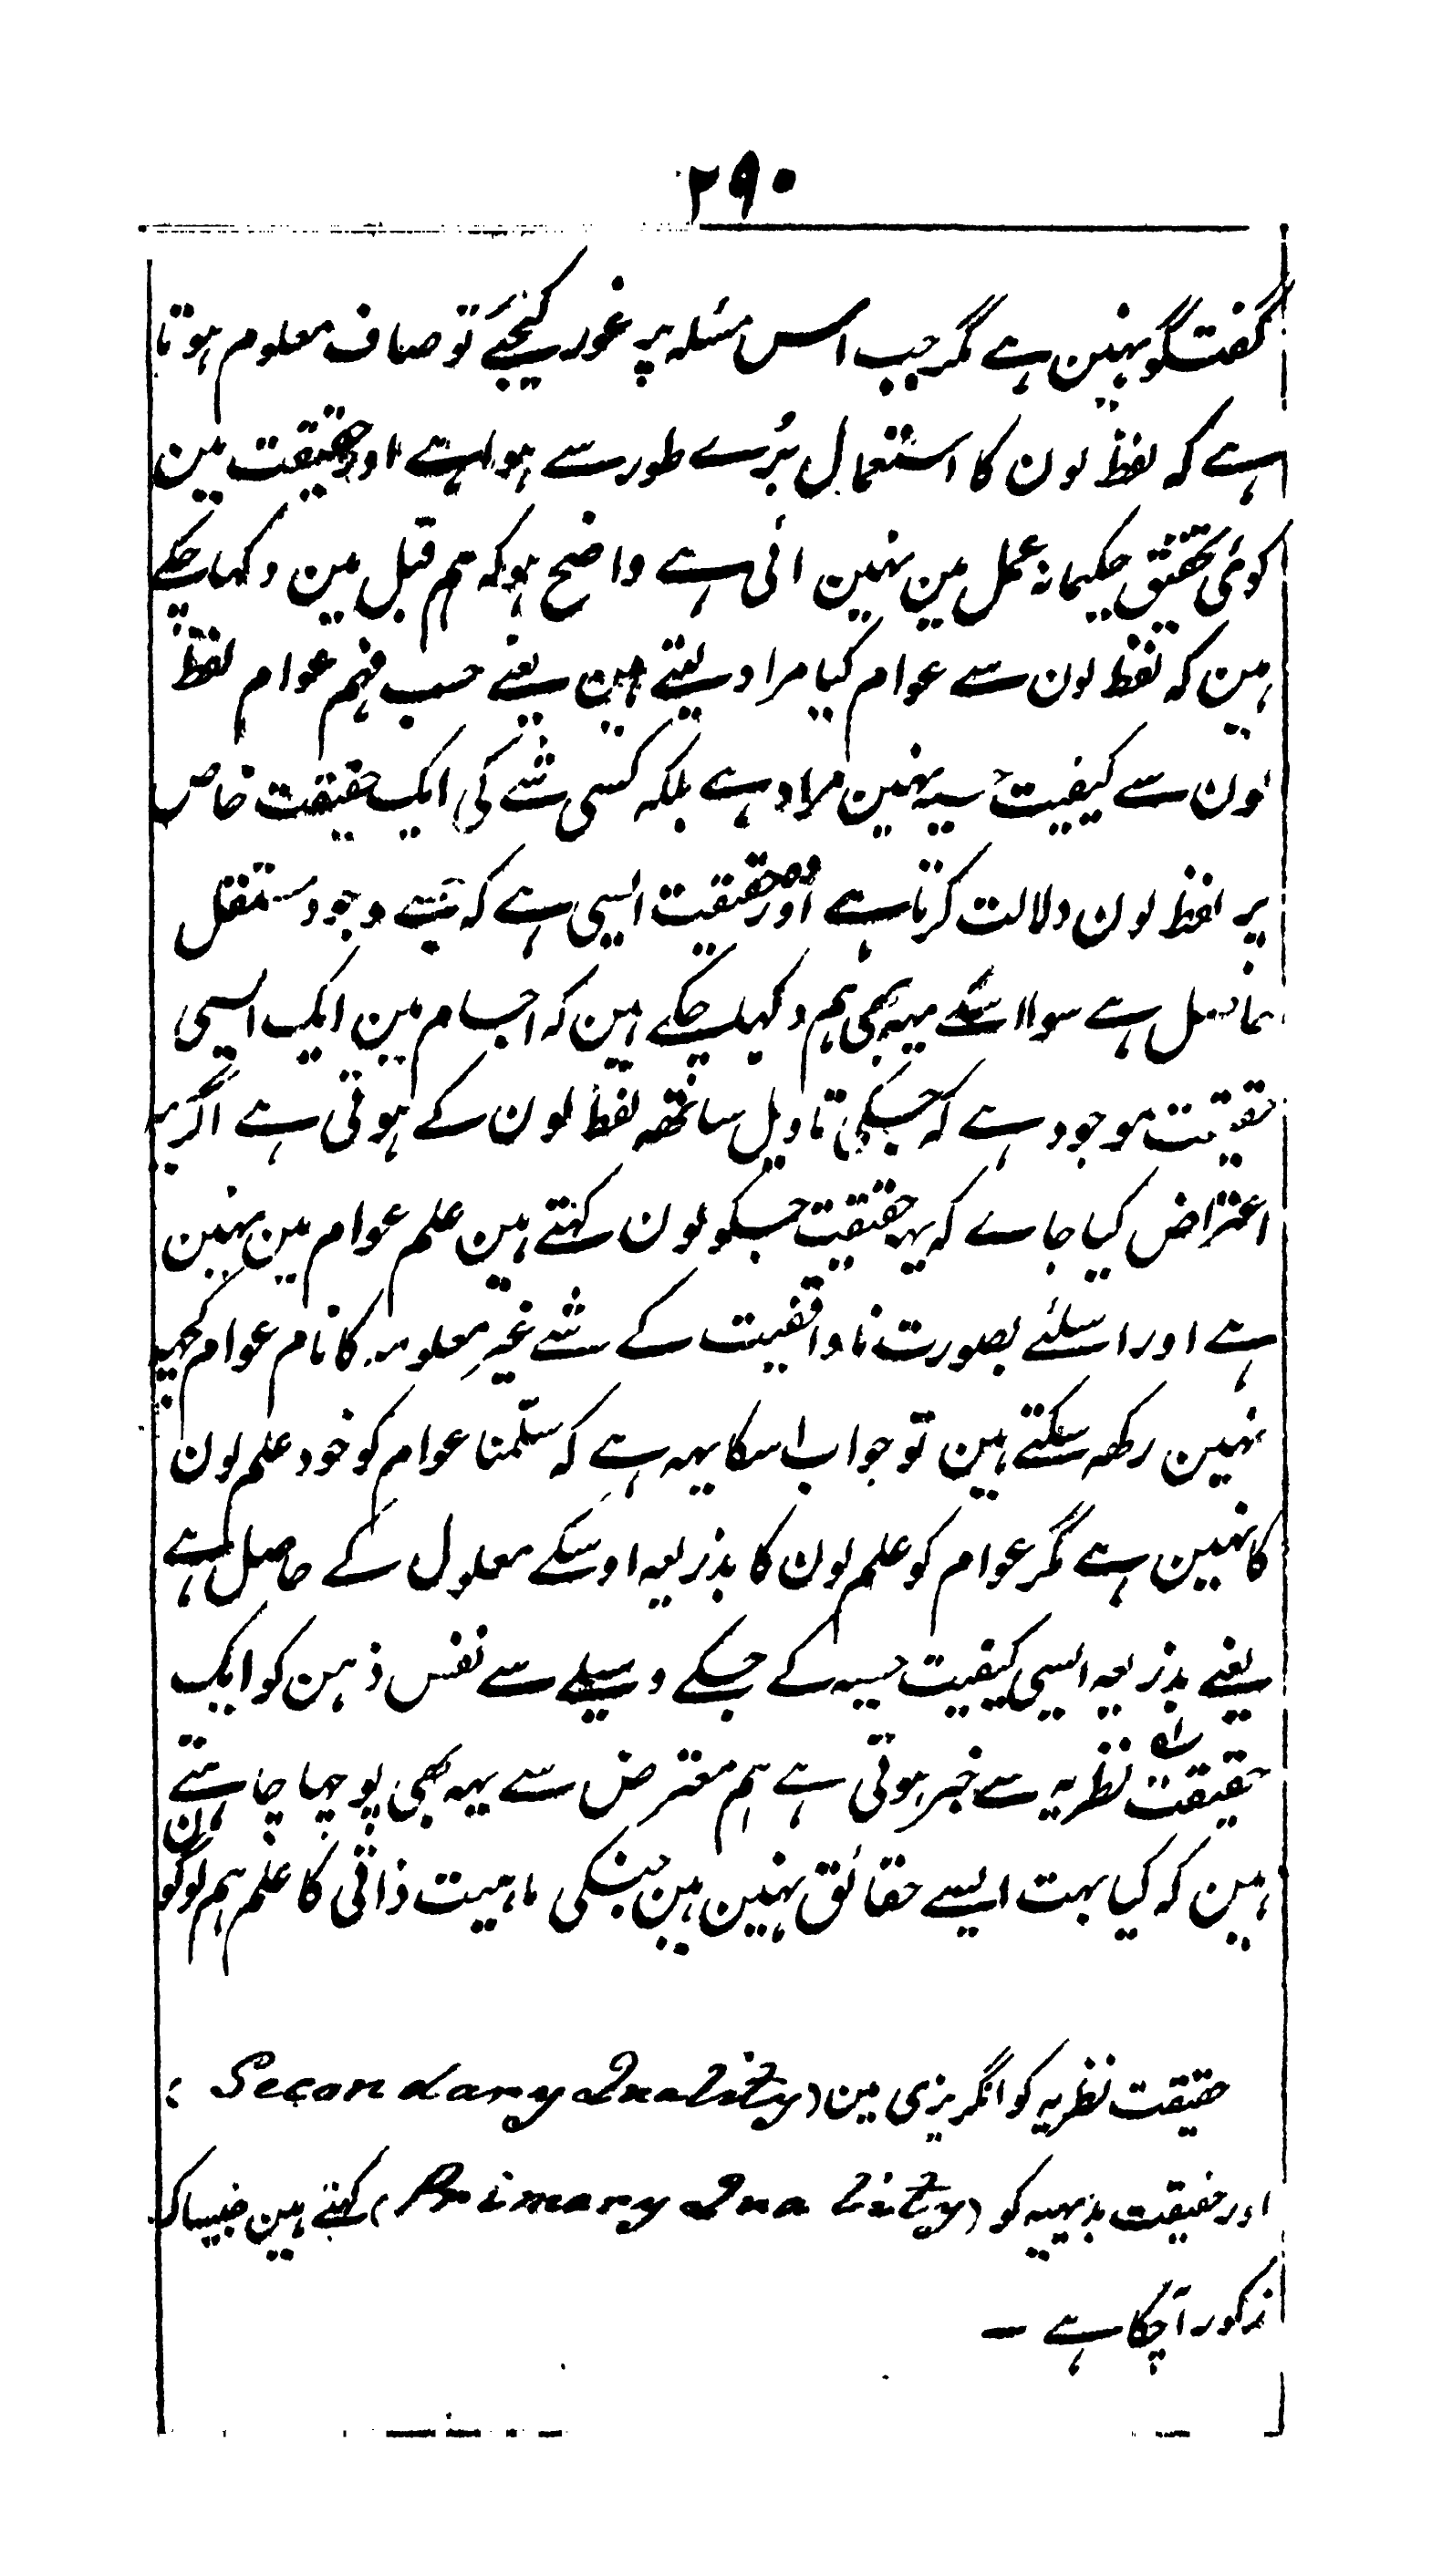 ۲۹۰
گفتگو نہین ہے مگر جب اس مسئلہ پر غور کیجئے تو صاف معلوم ہوتا
ہے کہ لفظ لون کا استعمال بُرے طور سے ہوا ہے اور حقیقت مین
کوئی تحقیق حکیمانہ عمل مین نہین ائی ہے واضح ہو کہ ہم قبل مین دکہا چکے
ہین کہ لفظ لون سے عوام کیا مراد لیتے ہین یعنے حسب فہم عوام لفظ
لون سے کیفیت حسیہ نہین مراد ہے بلکہ کسی شے کی ایک حقیقت خاص
پر لفظ لون دلالت کرتا ہے اور وہ حقیقت ایسی ہے کہ جسے وجود مستقل
حاصل ہے سوا اسکے یہہ بھی ہم دکہلا چکے ہین کہ اجسام مین ایک ایسی
حقیقت موجود ہے کہ جسکی تاویل ساتھہ لفظ لون کے ہوتی ہے اگر یہ
اعتراض کیا جاے کہ یہ حقیقت جسکو لون کہتے ہین علم عوام مین نہین
ہے اور اسلئے بصورت ناواقفیت کے شے غیر معلومہ کا نام عوام کچہہ
نہین رکھہ سکتے ہین تو جواب اسکا یہہ ہے کہ سلّمنا عوام کو خود علم لون
کا نہین ہے مگر عوام کو علم لون کا بذریعہ اوسکے معلول کے حاصل ہے
یعنے بذریعہ ایسی کیفیت حسیہ کے جسکے وسیلے سے نفس ذہن کو ایک
حقیقت نظریہ سے خبر ہوتی ہے ہم معترض سے یہہ بھی پوچہا چاہتے
ہین کہ کیا بہت ایسے حقائق نہین ہین جنکی ماہیت ذاتی کا علم ہم لوگون
حقیقت نظریہ کو انگریزی مین (Secondary Quality)
اور حقیقت بدیہیہ کو (Primary Quality) کہتے ہین جیسا کہ
مذکور آچکا ہے —